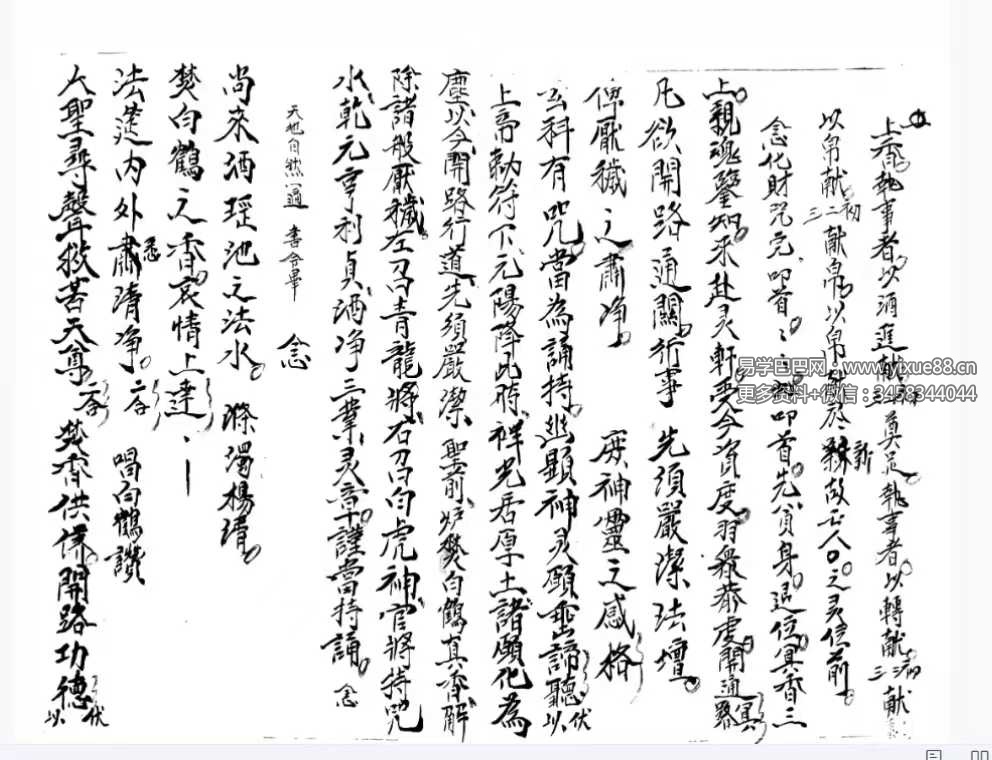 上香執事者以酒進献 奠足執事者以轉献初二三献
以帛献初二三献帛以帛 於新故亡人○之灵位前
念化財咒完叩首 叩首先貟身退位冥香三
上親魂鑒知來赴灵軒受今資度羽衆恭虔開通冥路
凡欲開路通關行事 先須嚴潔法壇
俾厭穢之肅净 庶神靈之感格
玄科有咒當為誦持 顯神灵願垂諦聽伏以
上帝勅符下元陽降此時祥光居厚土諸願化為
塵以今開路行道先須嚴潔聖前炉焚白鶴真香解
除諸般厭穢左召青龍將右召白虎神官將持咒
水乾元亨利貞酒净三業灵章謹當持誦 念
天地自然一遍 書令畢 念
尚來洒瑶池之法水 滌濁揚清
焚白鶴之香哀情上達
法筵内外肅清净 二答 唱白鶴讚
大聖尋聲救苦天尊 二答 焚香供養開路功德伏以
易学巴巴网：www.yixue88.cn
更多资料+微信：3458344044